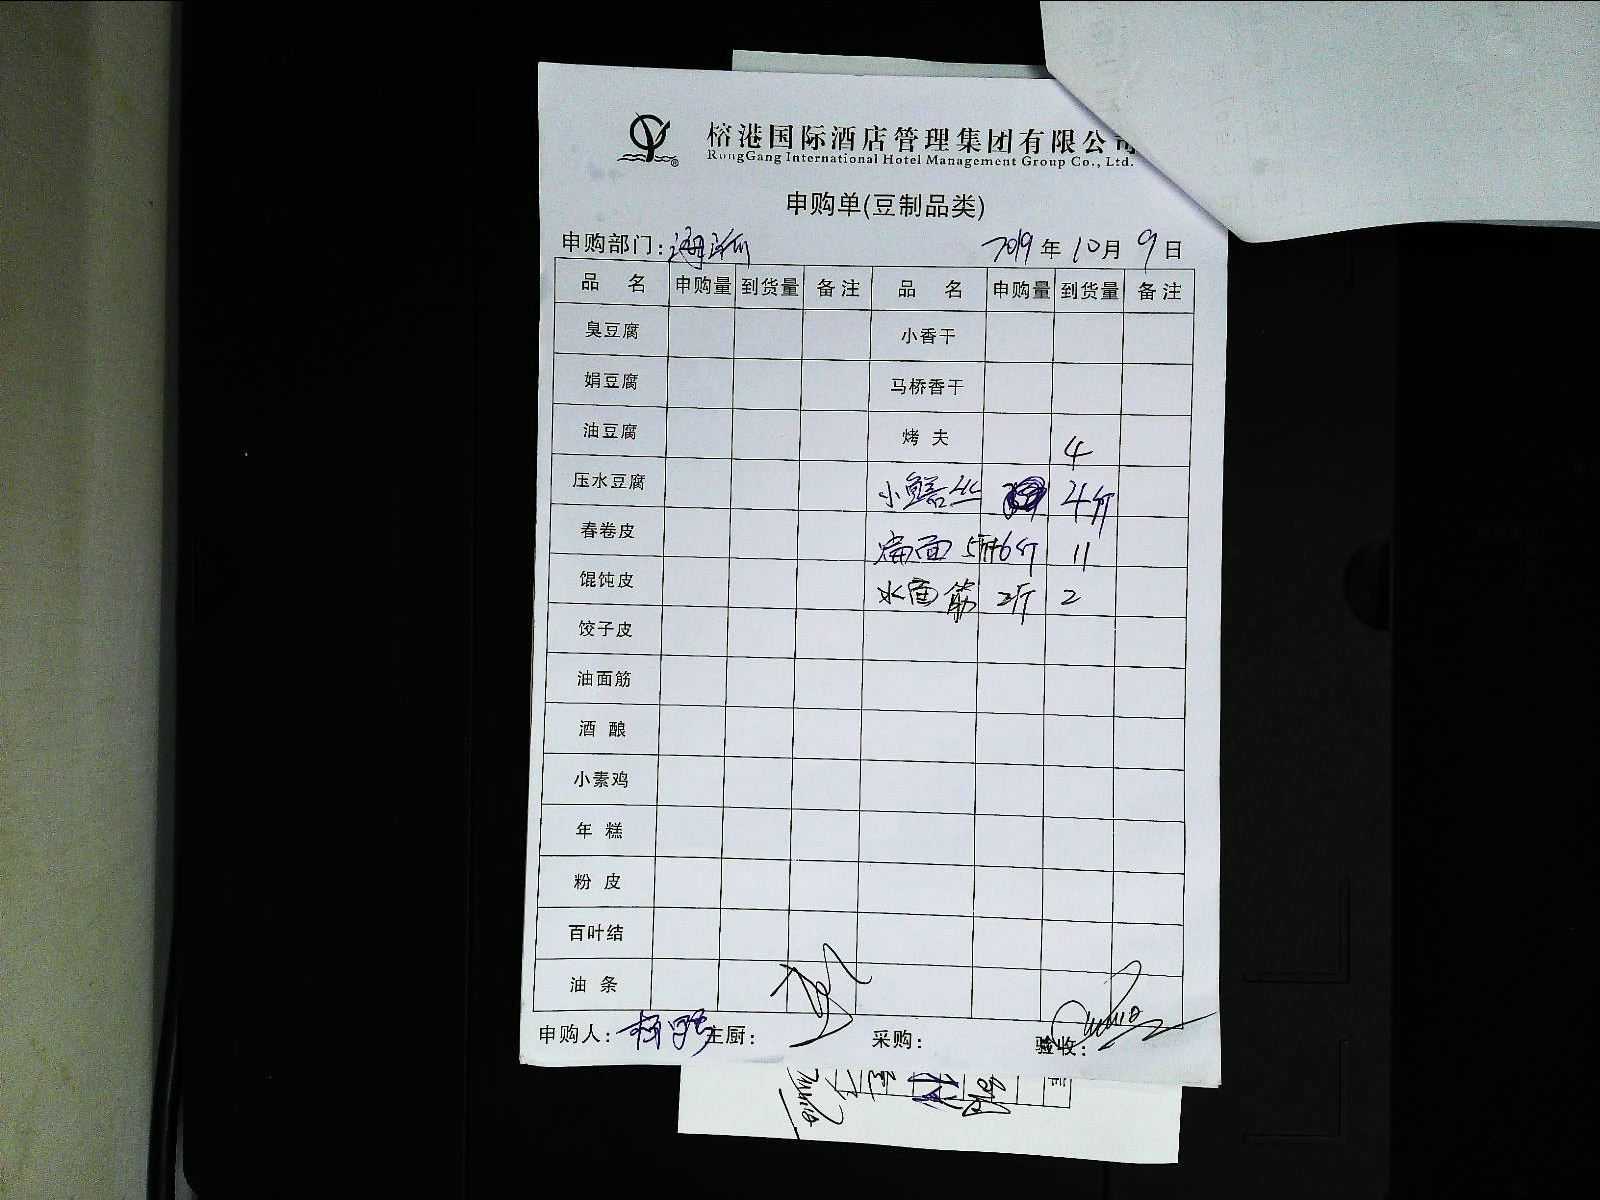 榕港国际酒店管理集团有限公司
RongGang International Hotel Management Group Co., Ltd.
申购单(豆制品类)
申购部门: 2019 年 10 月 9 日
品 名 申购量 到货量 备注 品 名 申购量 到货量 备注
臭豆腐 小香干
娟豆腐 马桥香干
油豆腐 烤夫 4
压水豆腐 小鳝丝 4斤
春卷皮 扁面 6斤 11
馄饨皮 水面筋 2斤 2
饺子皮
油面筋
酒酿
小素鸡
年糕
粉皮
百叶结
油条
申购人: 主厨: 采购: 验收: